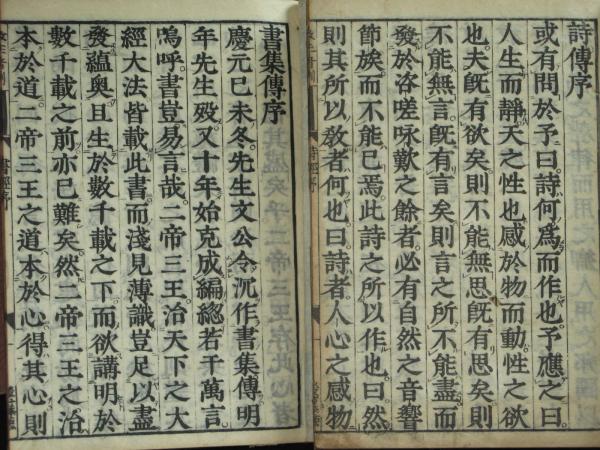 詩傳序
或有問於予曰詩何爲而作也予應之曰
人生而靜天之性也感於物而動性之欲
也夫旣有欲矣則不能無思旣有思矣則
不能無言旣有言矣則言之所不能盡而
發於咨嗟咏歎之餘者必有自然之音響
節族而不能已焉此詩之所以作也曰然
則其所以敎者何也曰詩者人心之感物
書集傳序
慶元己未冬先生文公令沉作書集傳明
年先生歿又十年始克成編總若干萬言
嗚呼書豈易言哉二帝三王治天下之大
經大法皆載此書而淺見薄識豈足以盡
發蘊奧且生於數千載之下而欲講明於
數千載之前亦已難矣然二帝三王之治
本於道二帝三王之道本於心得其心則
書經序